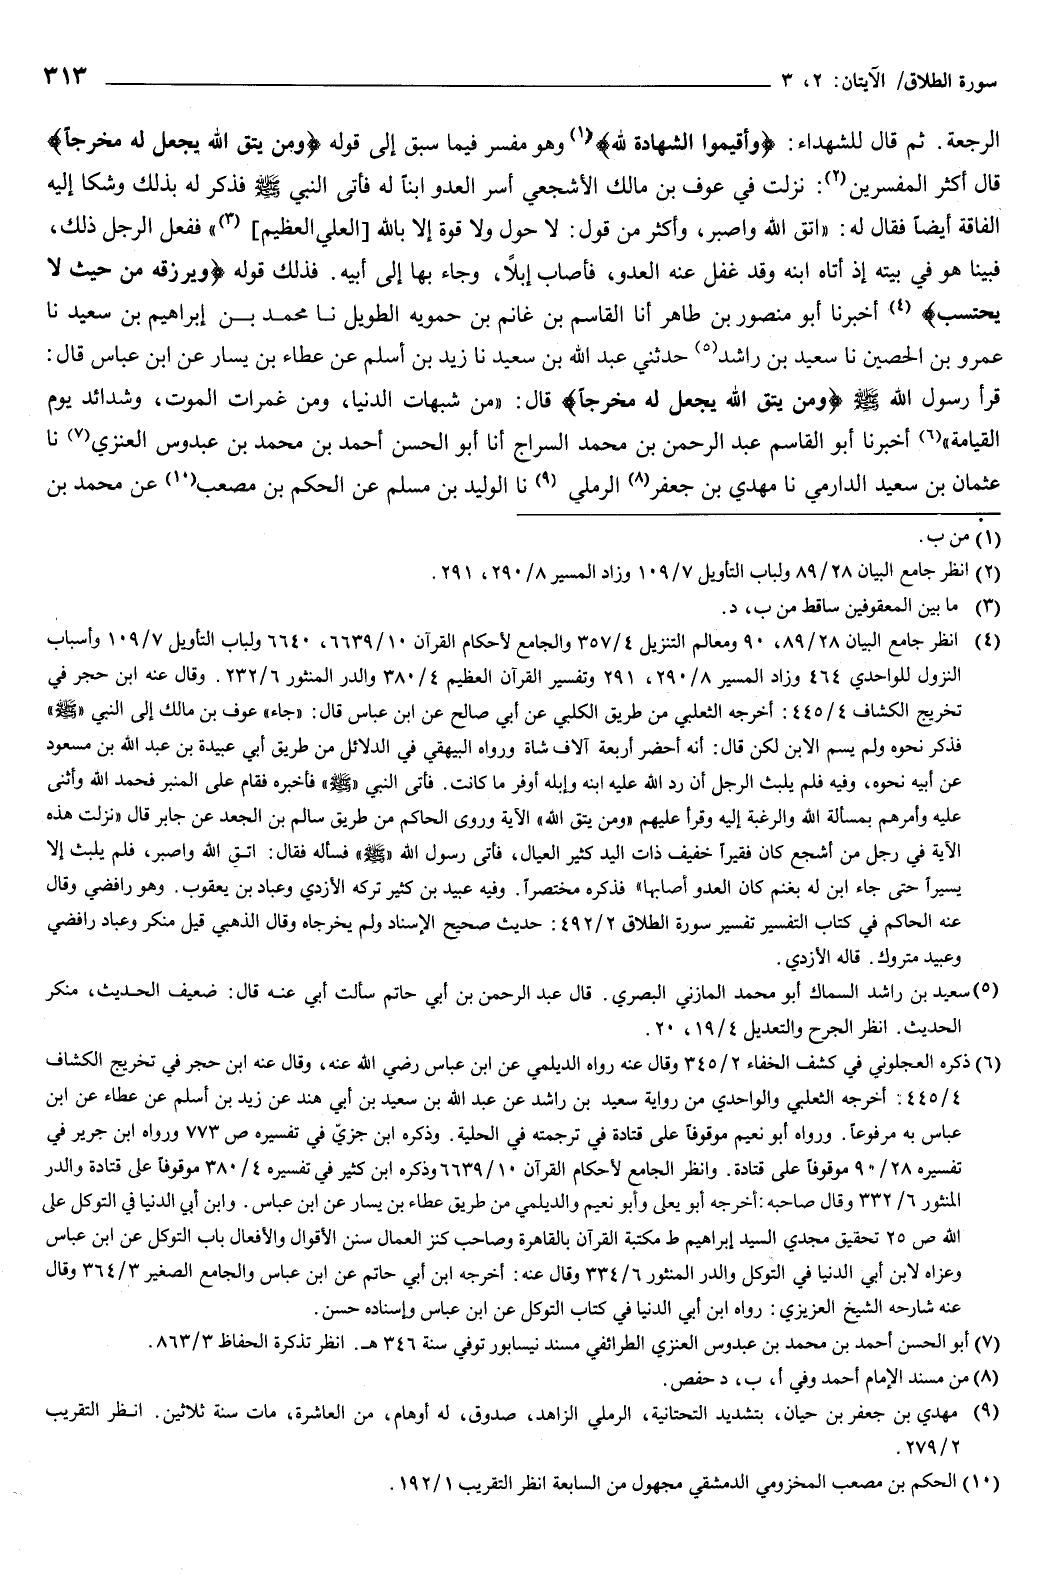 سورة الطلاق/ الآيتان: ٢، ٣ ٣١٣
الرجعة. ثم قال للشهداء: ﴿وأقيموا الشهادة لله﴾(١) وهو مفسر فيما سبق إلى قوله ﴿ومن يتق الله يجعل له مخرجاً﴾
قال أكثر المفسرين(٢): نزلت في عوف بن مالك الأشجعي أسر العدو ابناً له فأتى النبي ﷺ فذكر له بذلك وشكا إليه
الفاقة أيضاً فقال له: «اتق الله واصبر، وأكثر من قول: لا حول ولا قوة إلا بالله [العلي العظيم] (٣)» ففعل الرجل ذلك،
فبينا هو في بيته إذ أتاه ابنه وقد غفل عنه العدو، فأصاب إبلاً، وجاء بها إلى أبيه. فذلك قوله ﴿ويرزقه من حيث لا
يحتسب﴾ (٤) أخبرنا أبو منصور بن طاهر أنا القاسم بن غانم بن حمويه الطويل نا محمد بن إبراهيم بن سعيد نا
عمرو بن الحصين نا سعيد بن راشد(٥) حدثني عبد الله بن سعيد نا زيد بن أسلم عن عطاء بن يسار عن ابن عباس قال:
قرأ رسول الله ﷺ ﴿ومن يتق الله يجعل له مخرجاً﴾ قال: «من شبهات الدنيا، ومن غمرات الموت، وشدائد يوم
القيامة»(٦) أخبرنا أبو القاسم عبد الرحمن بن محمد السراج أنا أبو الحسن أحمد بن محمد بن عبدوس العنزي(٧) نا
عثمان بن سعيد الدارمي نا مهدي بن جعفر(٨) الرملي (٩) نا الوليد بن مسلم عن الحكم بن مصعب(١٠) عن محمد بن
(١) من ب.
(٢) انظر جامع البيان ٨٩/٢٨ ولباب التأويل ١٠٩/٧ وزاد المسير ٢٩٠/٨، ٢٩١.
(٣) ما بين المعقوفين ساقط من ب، د.
(٤) انظر جامع البيان ٨٩/٢٨، ٩٠ ومعالم التنزيل ٣٥٧/٤ والجامع لأحكام القرآن ٦٦٣٩/١٠، ٦٦٤٠ ولباب التأويل ١٠٩/٧ وأسباب
النزول للواحدي ٤٦٤ وزاد المسير ٢٩٠/٨، ٢٩١ وتفسير القرآن العظيم ٣٨٠/٤ والدر المنثور ٢٣٢/٦. وقال عنه ابن حجر في
تخريج الكشاف ٤٤٥/٤: أخرجه الثعلبي من طريق الكلبي عن أبي صالح عن ابن عباس قال: «جاء» عوف بن مالك إلى النبي «ﷺ»
فذكر نحوه ولم يسم الابن لكن قال: أنه أحضر أربعة آلاف شاة ورواه البيهقي في الدلائل من طريق أبي عبيدة بن عبد الله بن مسعود
عن أبيه نحوه، وفيه فلم يلبث الرجل أن رد الله عليه ابنه وإبله أوفر ما كانت. فأتى النبي «ﷺ» فأخبره فقام على المنبر فحمد الله وأثنى
عليه وأمرهم بمسألة الله والرغبة إليه وقرأ عليهم «ومن يتق الله» الآية وروى الحاكم من طريق سالم بن الجعد عن جابر قال «نزلت هذه
الآية في رجل من أشجع كان فقيراً خفيف ذات اليد كثير العيال، فأتى رسول الله «ﷺ» فسأله فقال: اتق الله واصبر، فلم يلبث إلا
يسيراً حتى جاء ابن له بغنم كان العدو أصابها» فذكره مختصراً. وفيه عبيد بن كثير تركه الأزدي وعباد بن يعقوب. وهو رافضي وقال
عنه الحاكم في كتاب التفسير تفسير سورة الطلاق ٤٩٢/٢: حديث صحيح الإسناد ولم يخرجاه وقال الذهبي قيل منكر وعباد رافضي
وعبيد متروك. قاله الأزدي.
(٥) سعيد بن راشد السماك أبو محمد المازني البصري. قال عبد الرحمن بن أبي حاتم سألت أبي عنه قال: ضعيف الحديث، منكر
الحديث. انظر الجرح والتعديل ١٩/٤، ٢٠.
(٦) ذكره العجلوني في كشف الخفاء ٣٤٥/٢ وقال عنه رواه الديلمي عن ابن عباس رضي الله عنه، وقال عنه ابن حجر في تخريج الكشاف
٤٤٥/٤: أخرجه الثعلبي والواحدي من رواية سعيد بن راشد عن عبد الله بن سعيد بن أبي هند عن زيد بن أسلم عن عطاء عن ابن
عباس به مرفوعاً. ورواه أبو نعيم موقوفاً على قتادة في ترجمته في الحلية. وذكره ابن جزيّ في تفسيره ص ٧٧٣ ورواه ابن جرير في
تفسيره ٩٠/٢٨ موقوفاً على قتادة. وانظر الجامع لأحكام القرآن ٦٦٣٩/١٠ وذكره ابن كثير في تفسيره ٣٨٠/٤ موقوفاً على قتادة والدر
المنثور ٣٣٢/٦ وقال صاحبه: أخرجه أبو يعلى وأبو نعيم والديلمي من طريق عطاء بن يسار عن ابن عباس. وابن أبي الدنيا في التوكل على
الله ص ٢٥ تحقيق مجدي السيد إبراهيم ط مكتبة القرآن بالقاهرة وصاحب كنز العمال سنن الأقوال والأفعال باب التوكل عن ابن عباس
وعزاه لابن أبي الدنيا في التوكل والدر المنثور ٣٣٤/٦ وقال عنه: أخرجه ابن أبي حاتم عن ابن عباس والجامع الصغير ٣٦٤/٣ وقال
عنه شارحه الشيخ العزيزي: رواه ابن أبي الدنيا في كتاب التوكل عن ابن عباس وإسناده حسن.
(٧) أبو الحسن أحمد بن محمد بن عبدوس العنزي الطرائفي مسند نيسابور توفي سنة ٣٤٦ هـ. انظر تذكرة الحفاظ ٨٦٣/٣.
(٨) من مسند الإمام أحمد وفي أ، ب، د حفص.
(٩) مهدي بن جعفر بن حيان، بتشديد التحتانية، الرملي الزاهد، صدوق، له أوهام، من العاشرة، مات سنة ثلاثين. انظر التقريب
٢٧٩/٢.
(١٠) الحكم بن مصعب المخزومي الدمشقي مجهول من السابعة انظر التقريب ١٩٢/١.